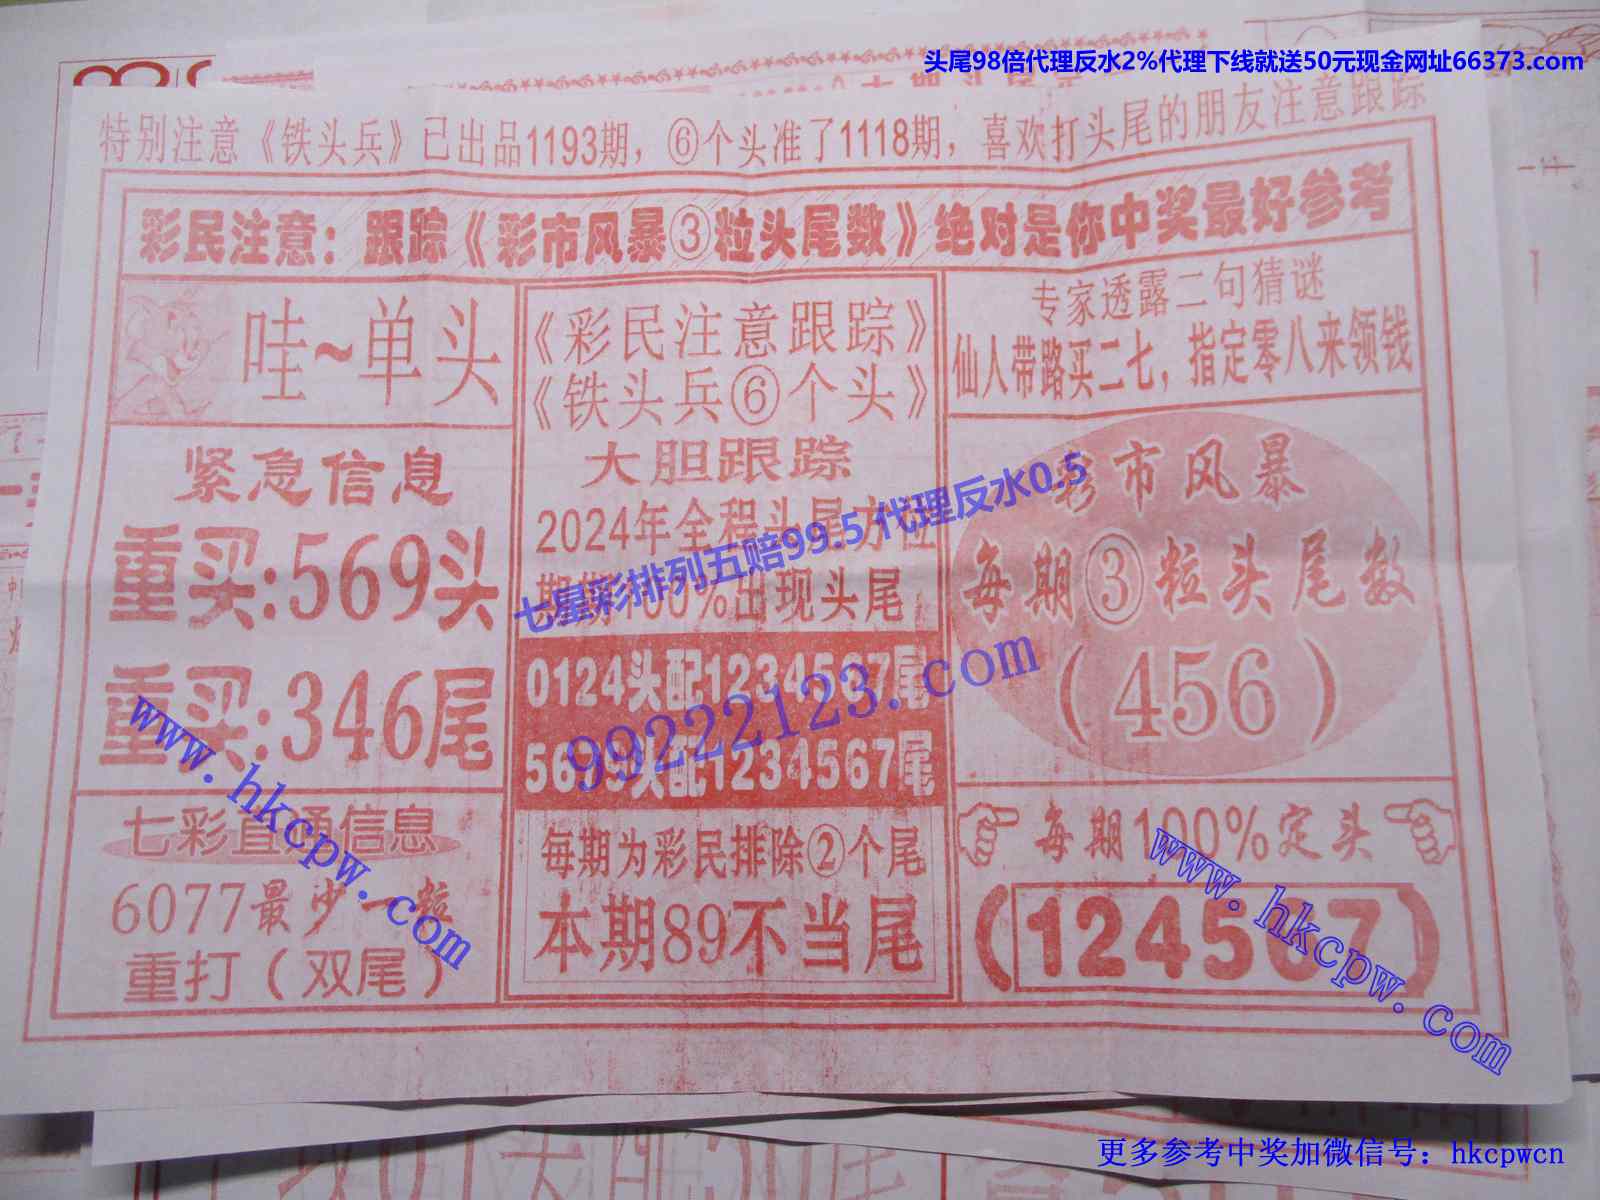 头尾98倍代理反水2%代理下线就送50元现金网址66373.com
特别注意《铁头兵》已出品1193期，⑥个头准了1118期，喜欢打头尾的朋友注意跟踪
彩民注意：跟踪《彩市风暴③粒头尾数》绝对是你中奖最好参考
哇~单头
紧急信息
重买:569头
重买:346尾
七彩直通信息
6077最少一粒
重打（双尾）
《彩民注意跟踪》
《铁头兵⑥个头》
大胆跟踪
2024年全程头尾方位
期期100%出现头尾
0124头配1234567尾
5689头配1234567尾
每期为彩民排除②个尾
本期89不当尾
专家透露二句猜谜
仙人带路买二七，指定零八来领钱
彩市风暴
每期③粒头尾数
（456）
每期100%定头
（124567）
七星彩排列五赔99.5代理反水0.5
99222123.com
www.hkcpw.com
www.hkcpw.com
更多参考中奖加微信号：hkcpwcn